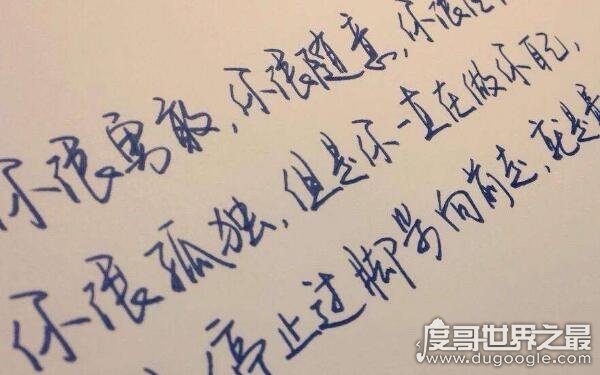 你很勇敢,你很随意,你很
你很孤独,但是你一直在做你自己,
停止过脚步向前走,就是
度哥世界之最
www.dugoogle.com